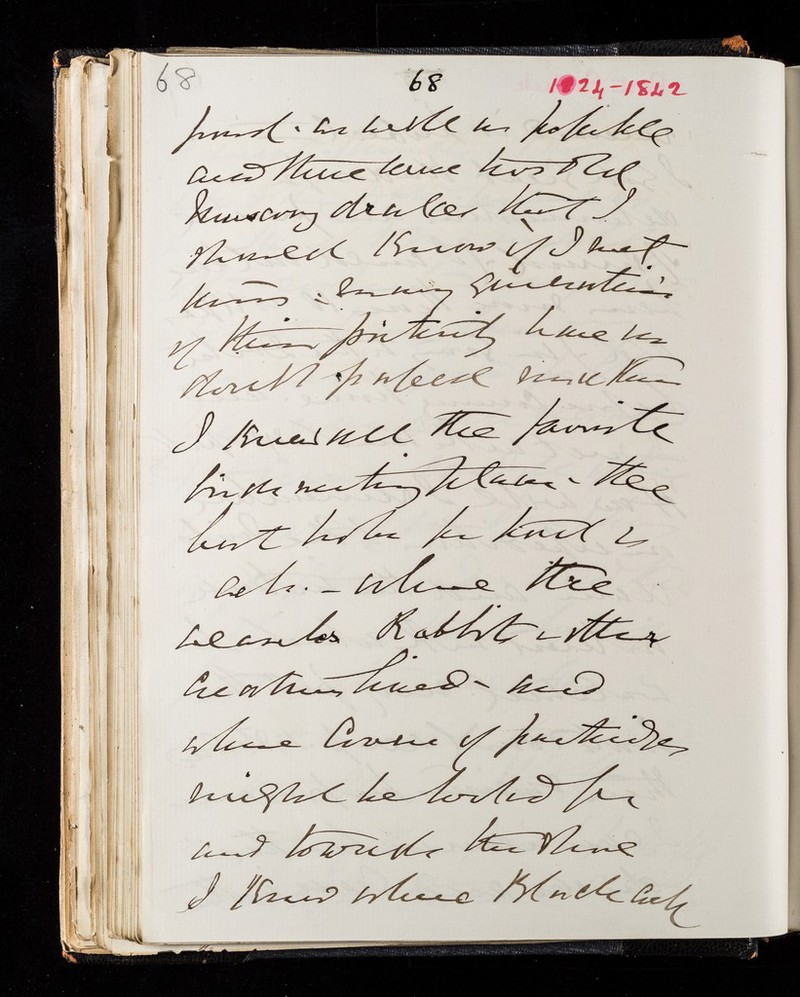 68 68 1824-1842
found. as well as possible
and there were two old
drake that I
should know if I met
him: many generations
of their posterity have no
doubt passed since then
I knew all the favorite
birds nesting places - the
best holes for
etc. - where the
weasels Rabbits & other
creatures lived - and
where Covies of partridges
might be looked for
and towards the Shore
I knew where Black cock